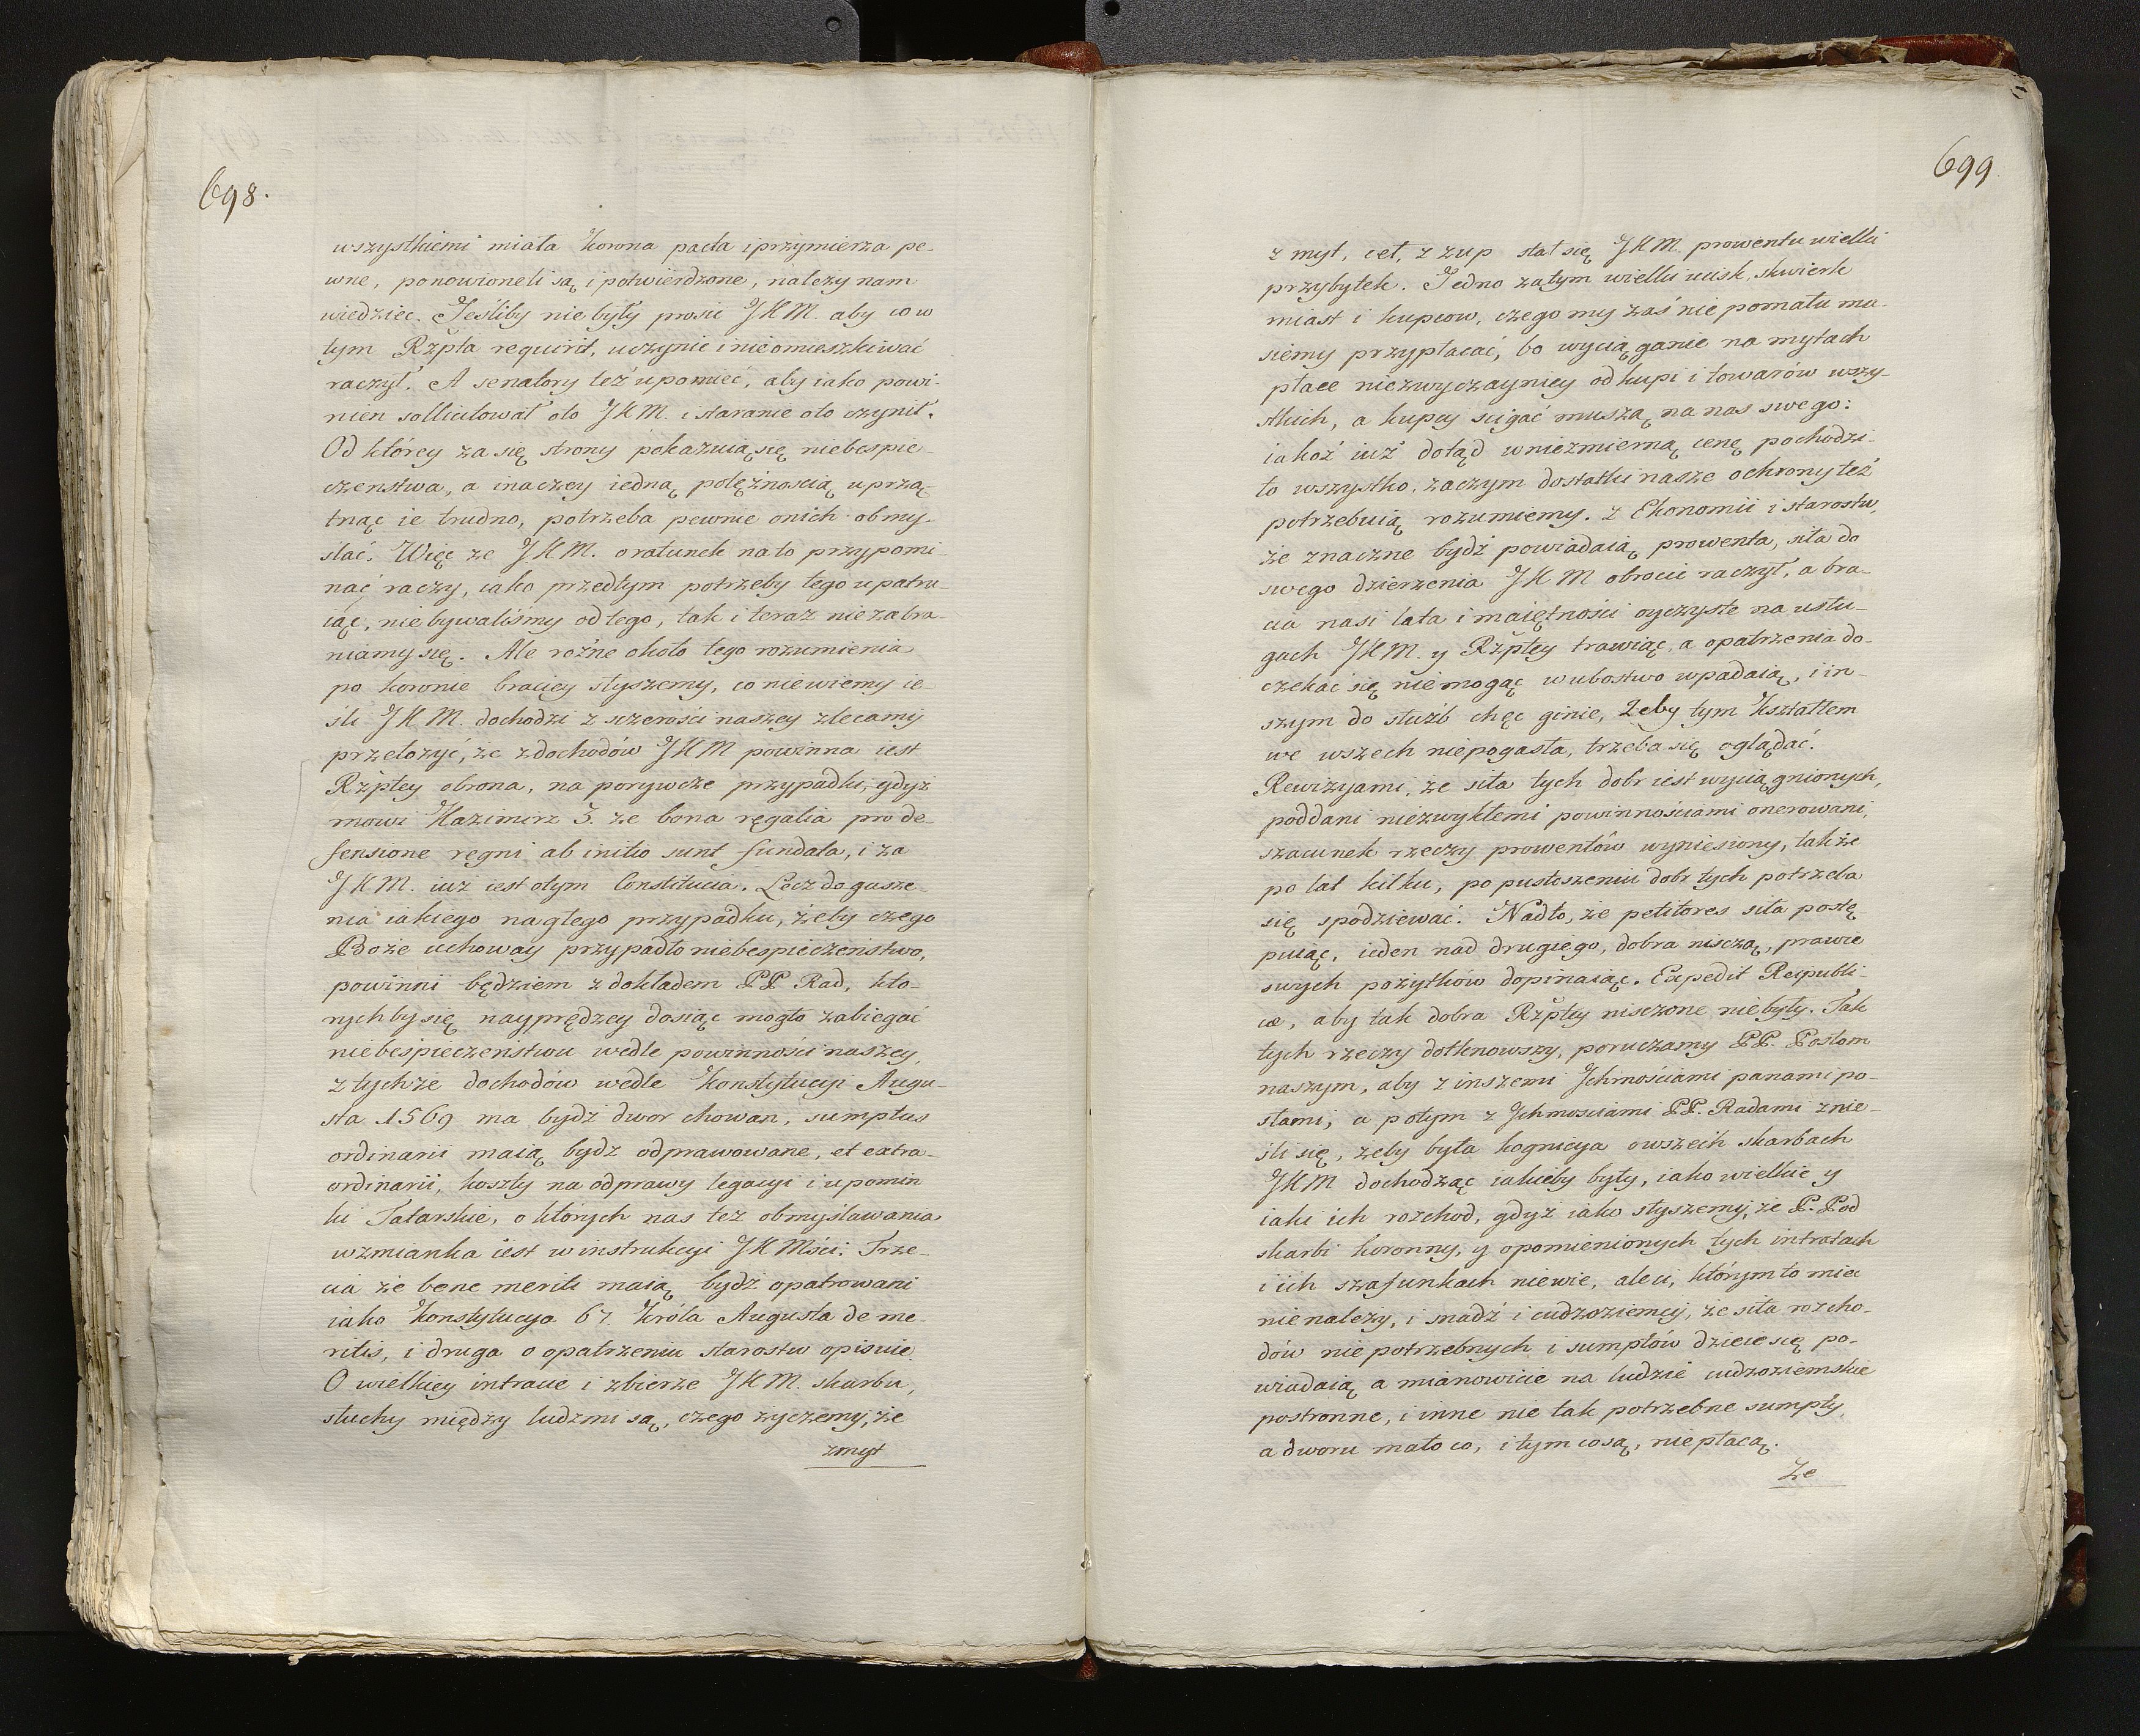 698.
wszystkiemi miała Korona pacta i przymierza pe-
wne, ponowioneli są i potwierdzone, należy nam
wiedzieć. Jeśliby nie były prosić JKM. aby co w
tym Rzpta requirit, uczynić i nieomieszkiwać
raczył. A senatory też upomieć, aby iako powi-
nien sollicitował oto JKM. i staranie oto czynił.
Od którey za się strony pokazuią się niebespie-
czenstwa, a inaczey iedną potężnością uprzą-
tnąć ie trudno, potrzeba pewnie onich obmy-
slać. Więc ze JKM. oratunek nato przypomi-
nać raczy, iako przedtym potrzeby tego upatru-
iąc, nie bywaliśmy od tego, tak i teraz nie zabra-
niamy się. Ale rożne około tego rozumienia
po koronie braciey słyszemy, co niewiemy ie-
śli JKM. dochodzi z szczerości naszey zlecamy
przełożyć, że z dochodów JKM powinna iest
Rzptey obrona, na porywcze przypadki, gdyż
mowi Kazimirz 3. ze bona regalia pro de-
fensione regni ab initio sunt fundata, i za
JKM. iuż iest otym Constitucia. Lecz do gasze-
nia iakiego nagłego przypadku, żeby czego
Boże uchoway przypadło niebespieczeństwo,
powinni będziem z dokładem PP Rad, któ-
rychby się nayprędzey dosiąc mogło zabiegać
niebespieczeństwu wedle powinności naszey,
z tychże dochodów wedle Konstytucyi Augu-
sta 1569 ma bydź dwor chowan, sumptus
ordinarii maią bydz odprawowane, et extra-
ordinarii, koszty na odprawy legacyi i upomin
ki Tatarskie, o których nas też obmyślawania
wzmianka iest w instrukcyi JKMści. Trze-
cia że bene meriti maią bydź opatrowani
iako Konstytucya 67. Króla Augusta de me-
ritis, i druga o opatrzeniu starostw opisuie.
O wielkiey intracie i zbierze JKM. skarbu,
słuchy między ludzmi są, czego życzemy, że
zmyt
699
z myt, cet, z zup stał się JKM. prowentu wielki
przybytek. Jedno zatym wielki ucisk, skwierk
miast i kupcow, czego my zaś nie pomału mu-
siemy przypłacać, bo wyciąganie na mytach
płace niezwyczayniey od kupi i towarów wszy-
stkich, a kupcy scigać muszą na nas swego:
iakoż iuż dotąd wniezmierną cenę pochodzi-
to wszystko, zaczym dostatki nasze ochrony też
potrzebuią rozumiemy. Z Ekonomii i starostw,
że znaczne bydź powiadaią prowenta, siła do
swego dzierzenia JKM obrocić raczył, a bra-
cia nasi lata i maiętności oyczyste na usłu-
gach JKM. y Rzptey trawiąc, a opatrzenia do-
czekać się niemogąc w ubostwo wpadaią, i in-
szym do służb chęc ginie, żeby tym kształtem
we wszech niepogasła, trzeba się oglądać.
Rewizyami, że siła tych dobr iest wyciągnionych,
poddani niezwykłemi powinnościami onerowani,
szacunek rzeczy prowentów wyniesiony, także
po lat kilku, po pustoszeniu dobr tych potrzeba
się spodziewać. Nadto, że petitores siła postę-
puiąc, ieden nad drugiego, dobra niszczą, prawie
swych pożytków dopinaiąc. Expedit Reipubli-
cæ, aby tak dobra Rzptey nisczone niebyły. Tak
tych rzeczy dotknowszy, poruczamy PP. Posłom
naszym, aby z inszemi Ichmościami panami po-
słami, a potym z Ichmościami PP. Radami znie-
śli się, żeby była kognicya owszech skarbach
JKM dochodząc iakieby były, iako wielkie y
iaki ich rozchod, gdyż iako słyszemy, że P. Pod
skarbi koronny, y opomienionych tych intratach
i ich szafunkach niewie, aleci, którym to mieć
nienależy, i snadź i cudzoziemcy, że siła rozcho-
dów niepotrzebnych i sumptów dzieie się po-
wiadaią a mianowicie na ludzie cudzoziemskie
postronne, i inne nie tak potrzebne sumpty,
a dworu mało co, i tym co są, niepłacą.
Ze